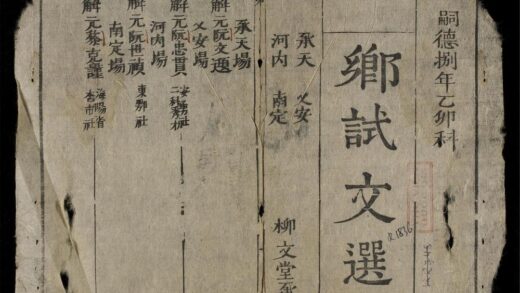 嗣德捌年乙卯科
鄉試文選
承天 乂安
河内 南定
柳文堂
承天場
解元阮文
乂安場
解元阮忠貫
河内場
解元阮世禎 東鄂社
南定場
解元 克謹 海陽省
杏市社